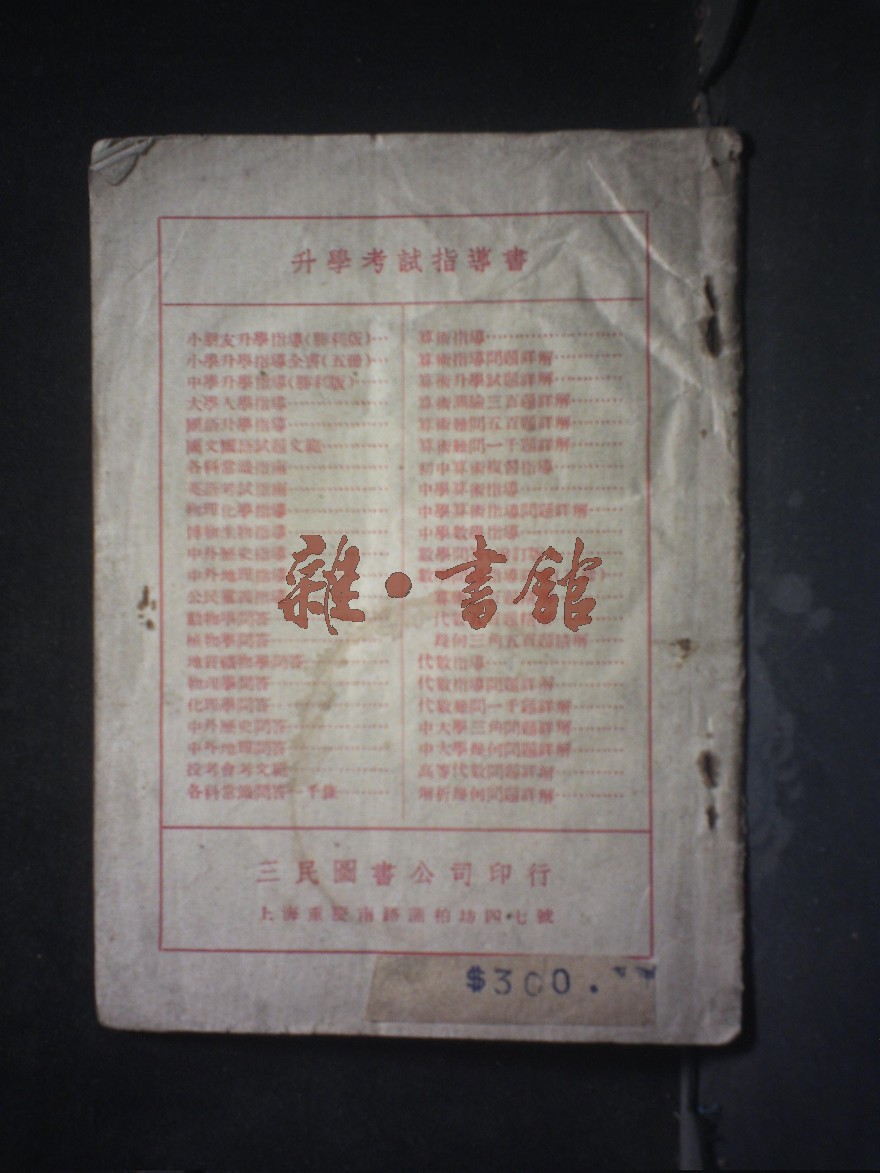 升學考試指導書
小朋友升學指導(勝利版)…
小學升學指導全書(五冊)…
中學升學指導(勝利版)……
大學入學指導………………
國語升學指導………………
國文國語試題文範…………
各科常識指南………………
英語考試指南………………
物理化學指導………………
博物生物指導………………
中外歷史指導
中外地理指導
公民黨義指導
動物學問答
植物學問答…………………
地質礦物學問答……………
物理學問答…………………
化學問答…………………
中外歷史問答………………
中外地理問答………………
投考會考文範………………
各科常識問答一千題………
算術指導……………………
算術指導問題詳解…………
算術升學試題詳解…………
算術測驗三百題詳解………
算術難問五百題詳解………
算術難問一千題詳解………
初中算術複習指導…………
中學算術指導………………
中學算術指導問題詳解……
中學數學指導………………
數學
數
幾何三角五百題詳解……
代數指導……………………
代數指導問題詳解…………
代數難問一千題詳解………
中大學三角問題詳解………
中大學幾何問題詳解………
高等代數問題詳解…………
解析幾何問題詳解…………
雜·書館
三民圖書公司印行
上海重慶南路蒲柏坊四七號
$300.